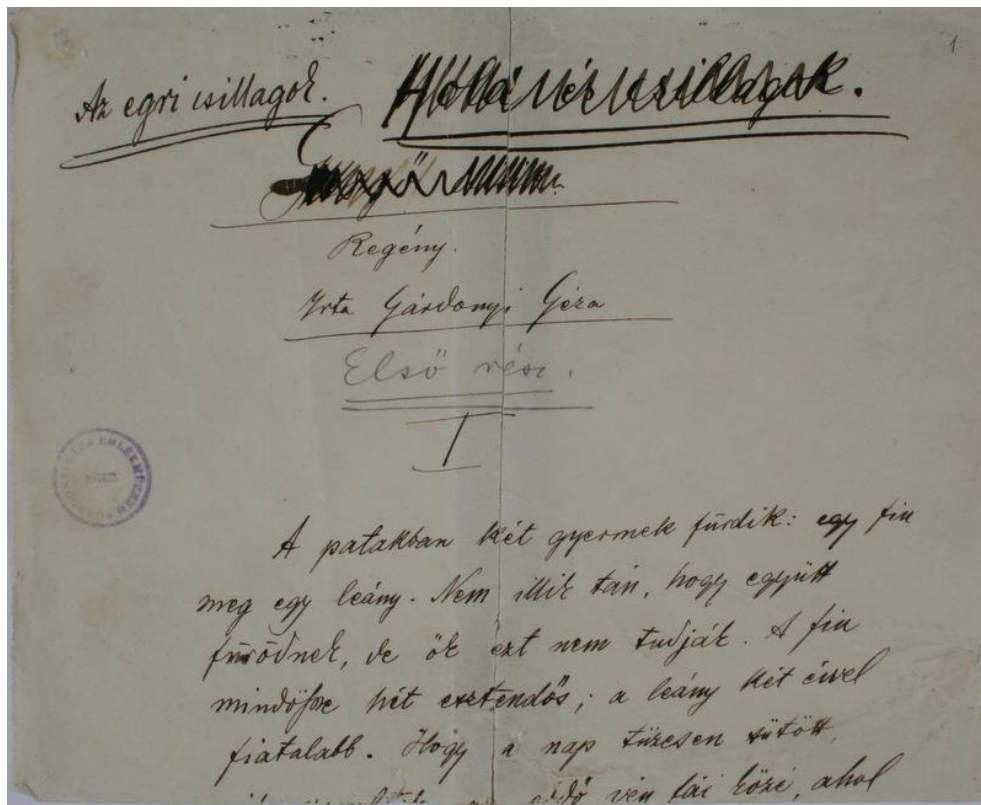 1
Az egri csillagok. Hold és csillagok.
Regény.
Irta Gárdonyi Géza
Első rész.
I
A patakban két gyermek fürdik: egy fiu
meg egy leány. Nem illik tán, hogy együtt
fürödnek, de ők ezt nem tudják. A fiu
mindössze hét esztendős; a leány két évvel
fiatalabb. Hogy a nap tüzesen sütött,
erdő vén fái közé, ahol